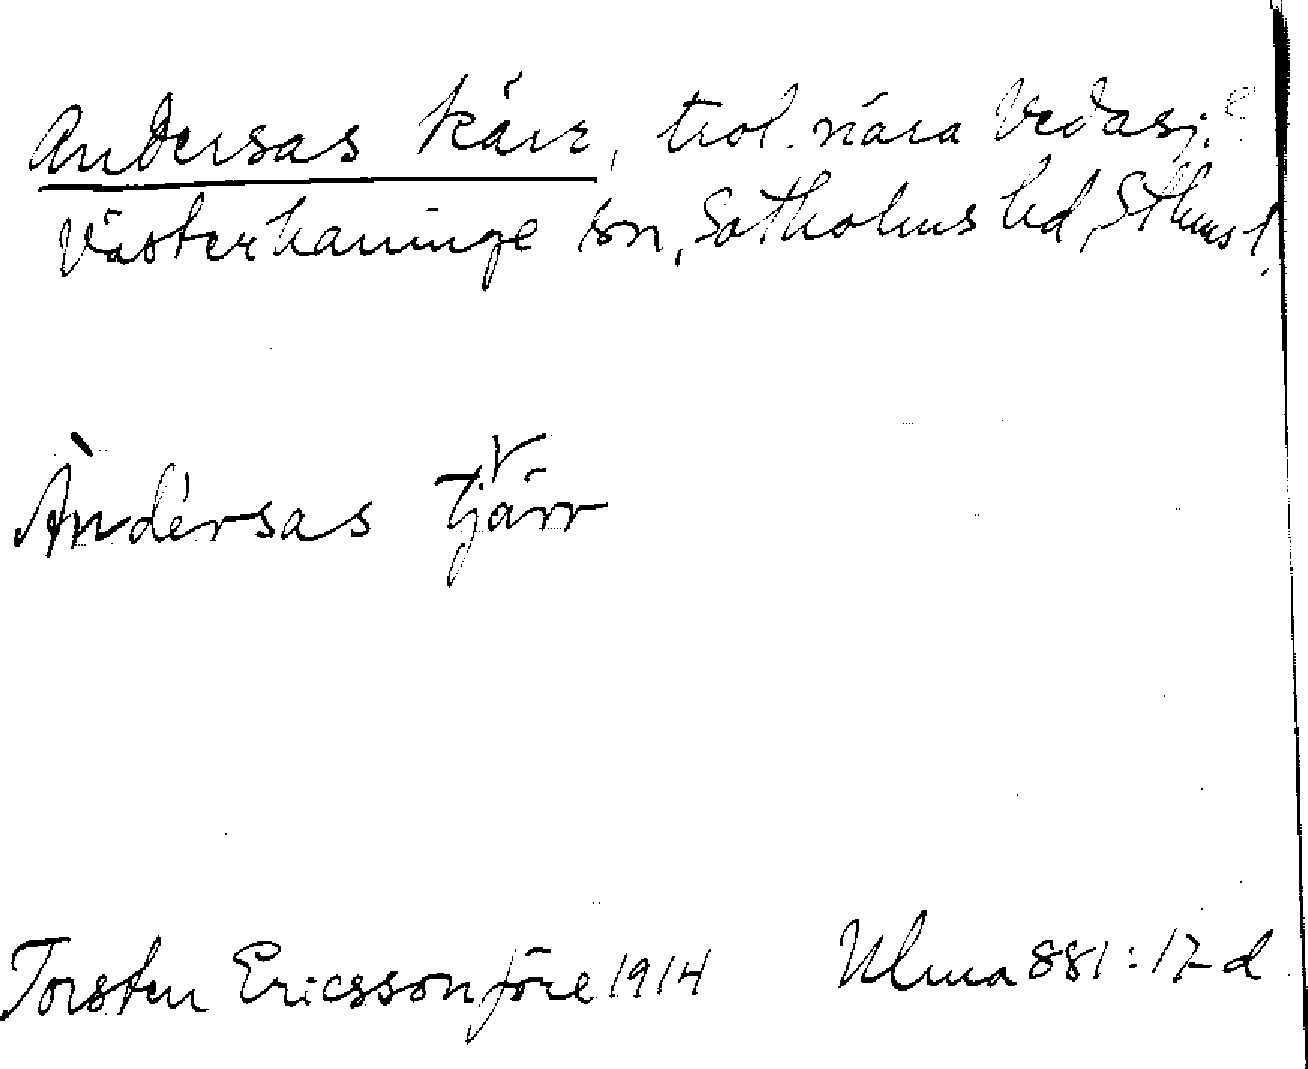 Andersas kärr, trol. nära Vedasj?
Västerhaninge sn, Sotholms hd, Sthms l.
Àndérsas tjärr
Torsten Ericsson före 1914 Ulma 881:17 d